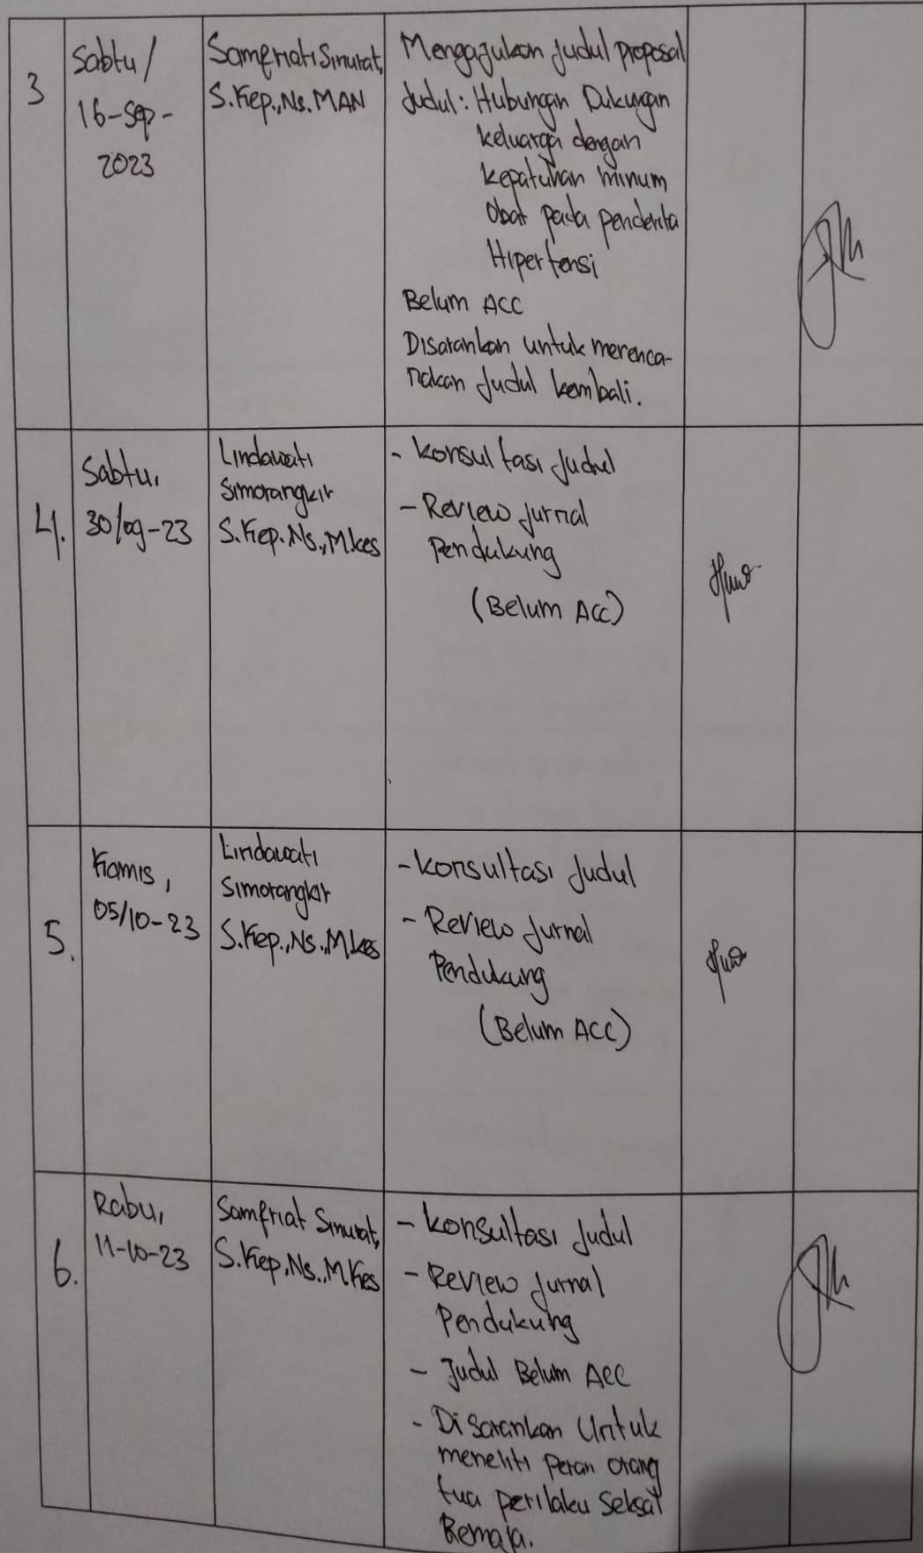 3
Sabtu/
16-Sep-
2023
Samfriati Sinurat,
S.Kep.,Ns.MAN
Mengajukan Judul proposal
Judul: Hubungan Dukungan
keluarga dengan
kepatuhan minum
Obat pada penderita
Hipertensi
Belum ACC
Disarankan untuk merenca-
nakan Judul kembali.
4.
Sabtu,
30/09-23
Lindawati
Simorangkir
S.Kep.Ns.,M.kes
- Konsultasi Judul
- Review Jurnal
Pendukung
(Belum ACC)
5.
Kamis,
05/10-23
Lindawati
Simorangkir
S.Kep.,Ns.,M.kes
- Konsultasi Judul
- Review Jurnal
Pendukung
(Belum ACC)
6.
Rabu,
11-10-23
Samfriat Sinurat,
S.Kep.,Ns.,M.Kes
- Konsultasi Judul
- Review Jurnal
Pendukung
- Judul Belum ACC
- Disarankan Untuk
meneliti Peran Orang
tua perilaku Seksal
Remaja.